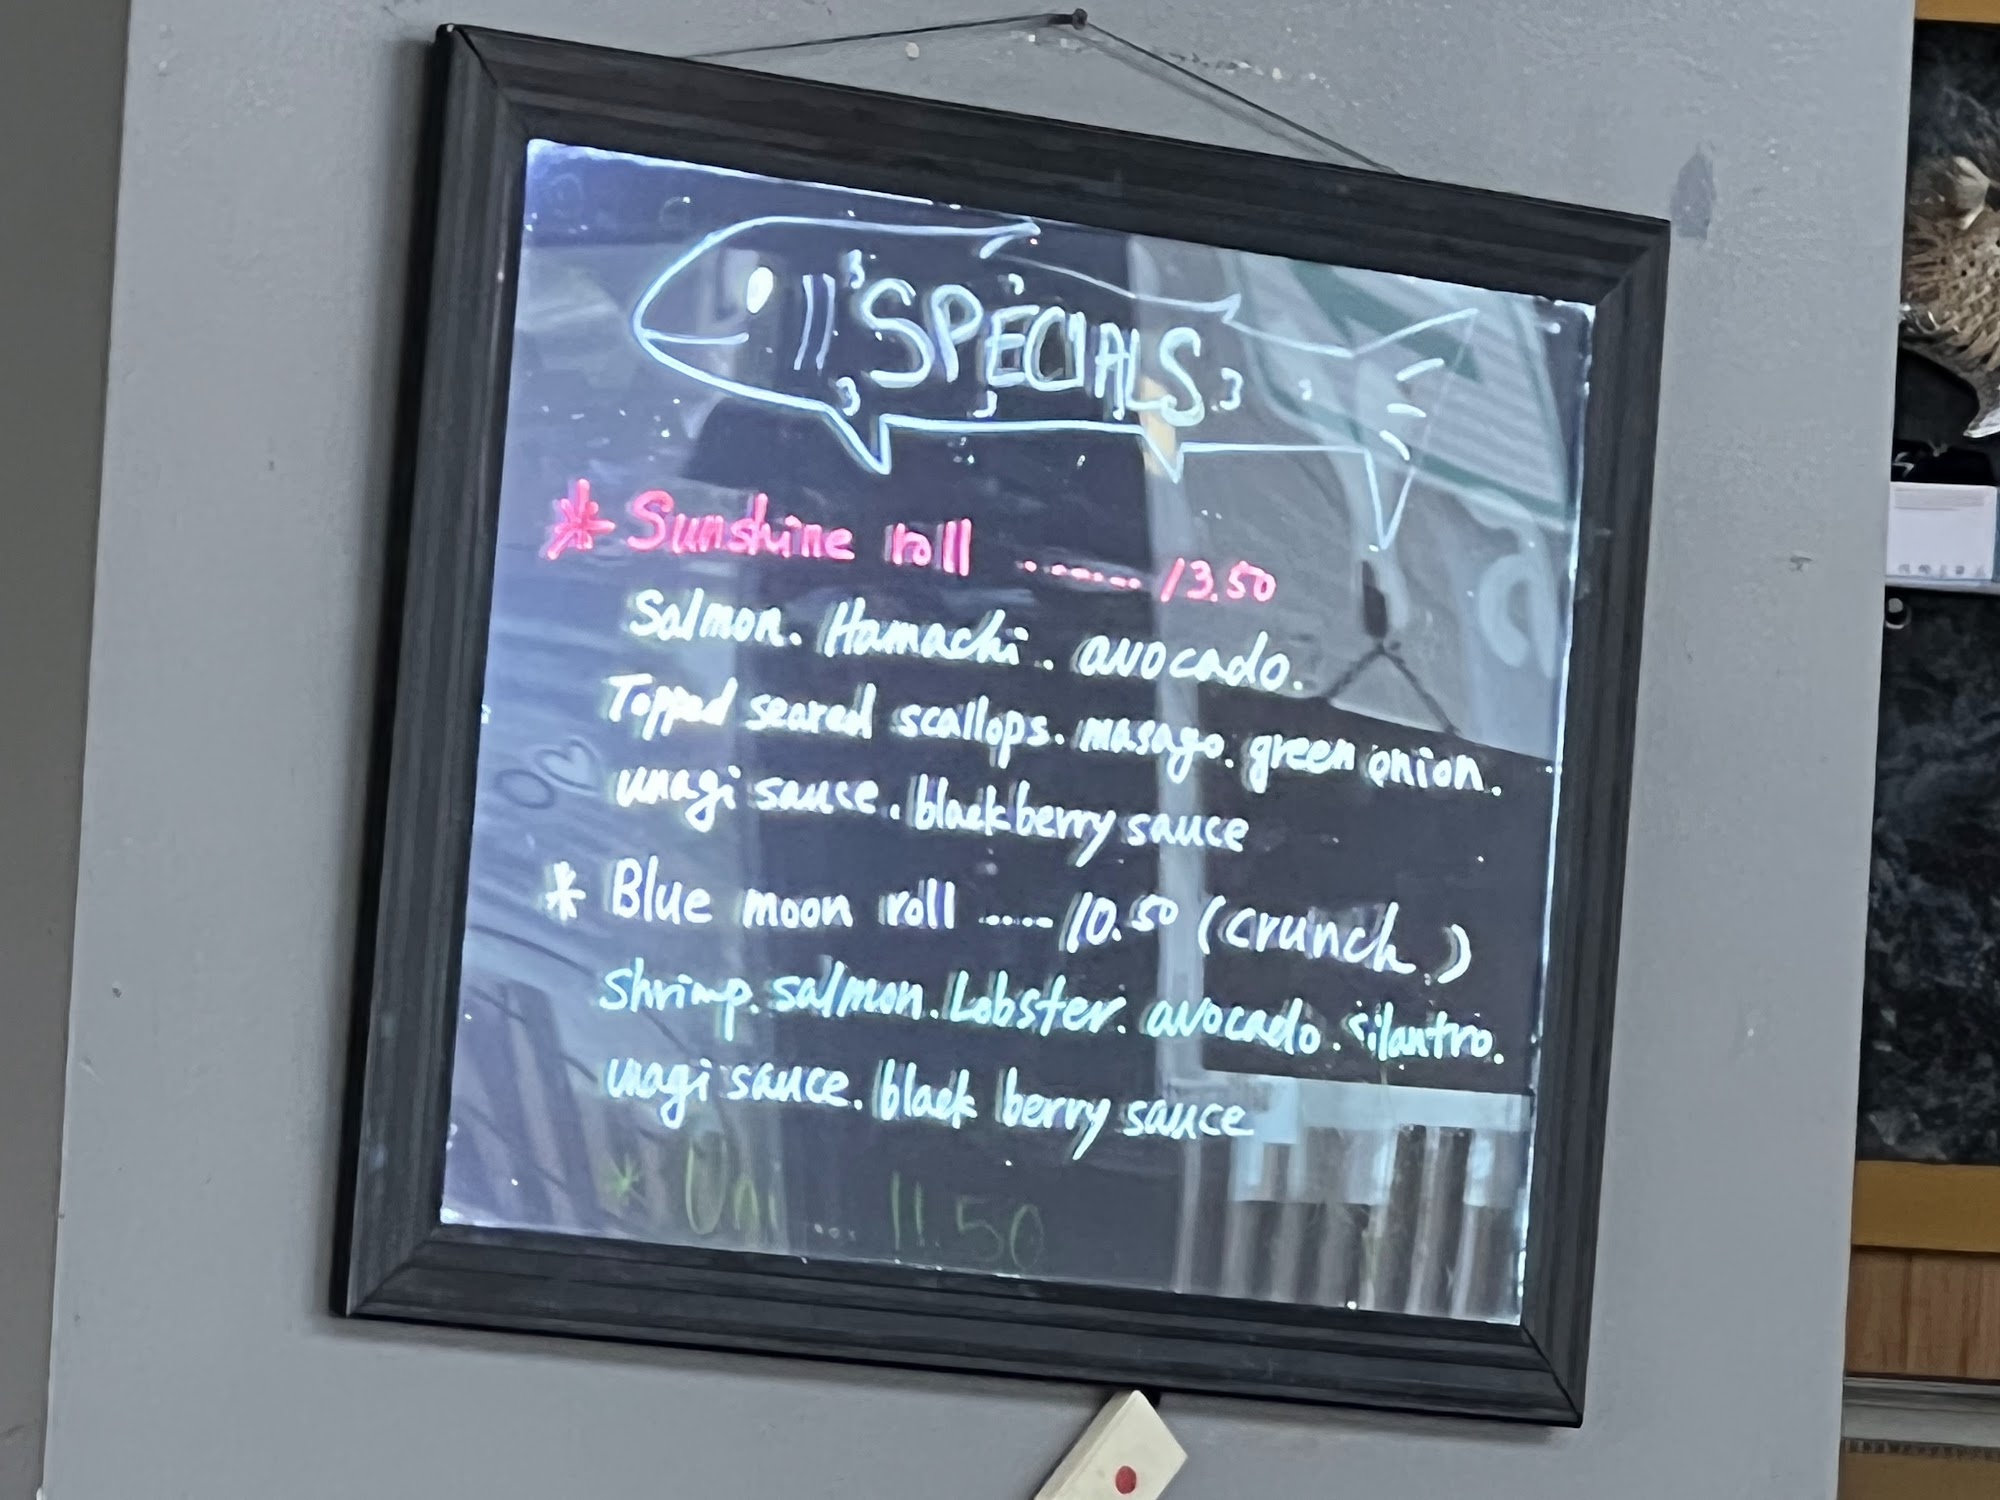 SPECIALS
* Sunshine roll ........ 13.50
Salmon. Hamachi. avocado.
Topped seared scallops. masago. green onion.
unagi sauce. blackberry sauce
* Blue moon roll ...... 10.50 (crunch)
shrimp. salmon. Lobster. avocado. silantro.
unagi sauce. black berry sauce
* Uni ... 11.50